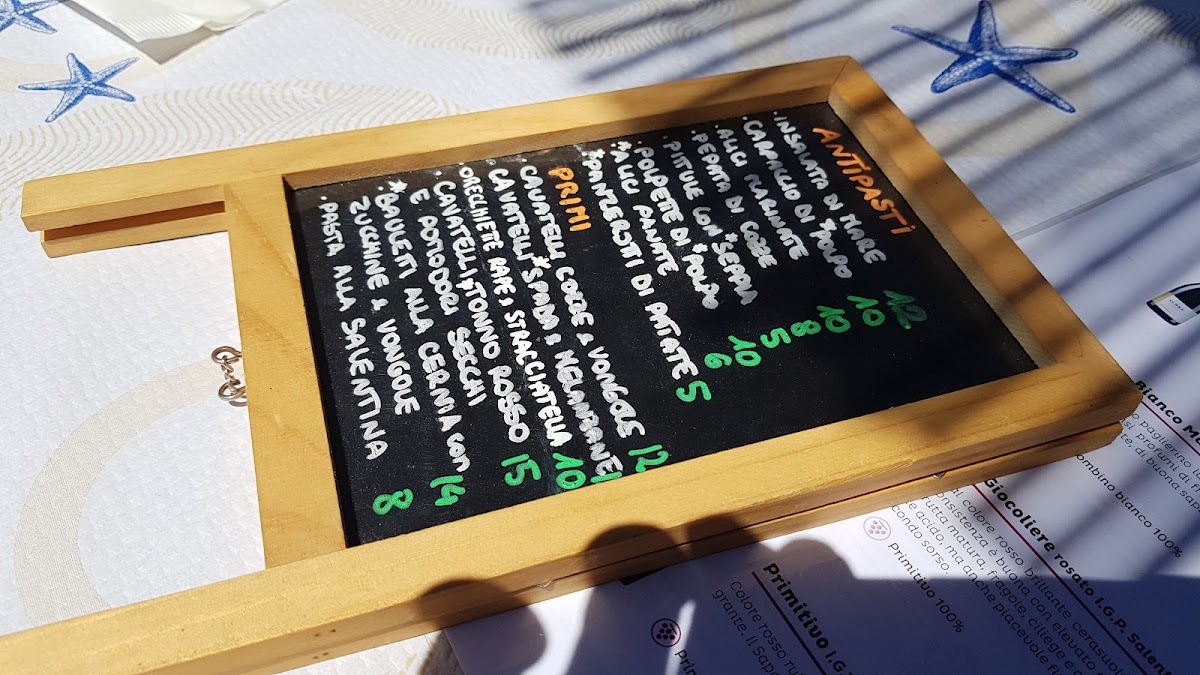 ANTIPASTI
. INSALATA DI MARE 12
. CARPACCIO DI *POLPO 10
. ALICI MARINATE 8
. PEPATA DI COZZE 10
. PITTULE CON *SEPPIA 5
. POLPETE DI *POLPO 10
*ALICI PANATE 6
*PANZEROTTI DI PATATE 5
PRIMI
. CAVATELLI COZZE & VONGOLE 12
CAVATELLI *SPADA & MELANZANE
ORECCHIETTE RAPE & STRACCIATELLA 10
. CAVATELLI *TONNO ROSSO 15
E POMODORI SECCHI
* BAULETTI ALLA CERNIA CON 14
ZUCCHINE & VONGOLE
. PASTA ALLA SALENTINA 8
Bianco
paglierino
profumi di
di buona
ombino bianco 100%
Giocoliere rosato I.G.P. Salent
al colore rosso brillante cerasuol
consistenza è buona con elevato
frutta matura, fragole, ciliegie e
e acido, ma anche piacevole
condo sorso.
Primitivo 100%
Primitivo I.G.
Colore rosso
grante. Il